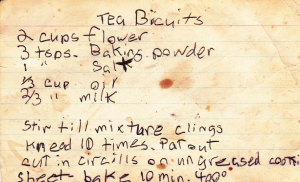 Tea Biscuits
2 cups flower
3 tsps. Baking powder
1 " Salt
1/3 cup oil
2/3 " milk
Stir till mixture clings
Knead 10 times. Pat out
cut in circills on ungreased cookie
sheet bake 10 min. 400°